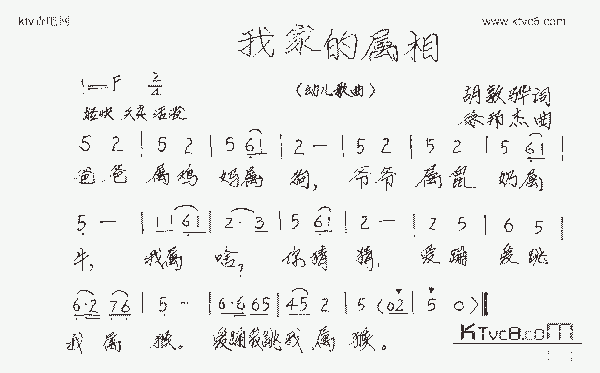 www.ktvc8.com
我家的属相
1=F 2/4
(幼儿歌曲)
胡敦骅词
轻快 天真 活泼
徐邦杰曲
5 2 | 5 2 | 5 61 | 2 - | 5 2 | 5 2 | 5 61 |
爸爸 属鸡 妈属 狗, 爷爷 属鼠 奶属
5 - | 11 61 | 2· 3 | 5 61 | 2 - | 2 5 | 6 5 |
牛, 我属 啥? 你猜 猜, 爱蹦 爱跳
6·2 76 | 5 - | 6·6 65 | 45 2 | 5 (02 | 5 0) ‖
我 属 猴。 爱蹦爱跳我 属 猴。
KTvc8.com